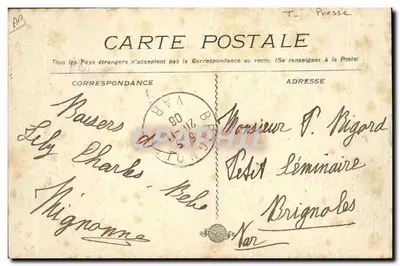 AP
T- Presse
CARTE POSTALE
Tous les Pays étrangers n'acceptent pas la Correspondance au recto. (Se renseigner à la Poste)
CORRESPONDANCE
ADRESSE
Baisers de
Lily Charles Bébé
Mignonne
VAR
Monsieur P. Bigard
Petit Séminaire
Brignoles
Var